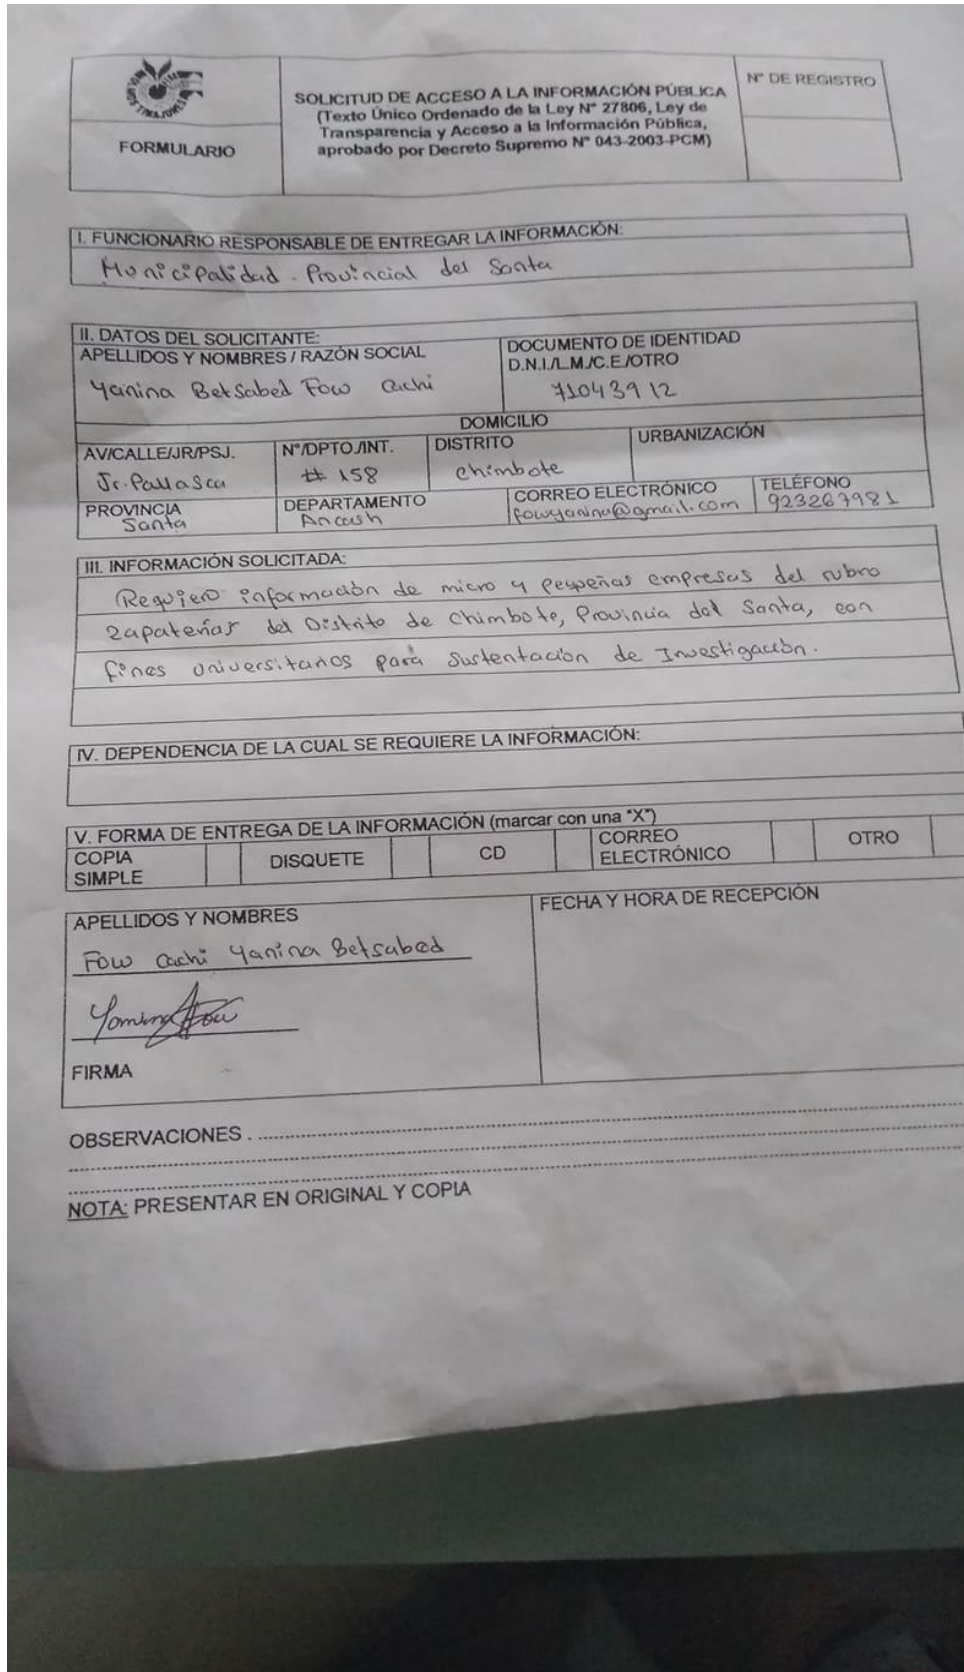 FORMULARIO
SOLICITUD DE ACCESO A LA INFORMACIÓN PÚBLICA
(Texto Único Ordenado de la Ley N° 27806, Ley de
Transparencia y Acceso a la Información Pública,
aprobado por Decreto Supremo N° 043-2003-PCM)
N° DE REGISTRO
I. FUNCIONARIO RESPONSABLE DE ENTREGAR LA INFORMACIÓN:
Municipalidad - Provincial del Santa
II. DATOS DEL SOLICITANTE:
APELLIDOS Y NOMBRES / RAZÓN SOCIAL
Yanina Betsabed Fow Cachi
DOCUMENTO DE IDENTIDAD
D.N.I./L.M./C.E./OTRO
71043912
DOMICILIO
AV/CALLE/JR/PSJ.
Jr. Pallasca
N°/DPTO./INT.
# 158
DISTRITO
Chimbote
URBANIZACIÓN
PROVINCIA
Santa
DEPARTAMENTO
Ancash
CORREO ELECTRÓNICO
fowyanina@gmail.com
TELÉFONO
923267981
III. INFORMACIÓN SOLICITADA:
Requiero información de micro y pequeñas empresas del rubro
zapaterías del Distrito de Chimbote, Provincia del Santa, con
fines universitarios para Sustentación de Investigación.
IV. DEPENDENCIA DE LA CUAL SE REQUIERE LA INFORMACIÓN:
V. FORMA DE ENTREGA DE LA INFORMACIÓN (marcar con una "X")
COPIA
SIMPLE
DISQUETE
CD
CORREO
ELECTRÓNICO
OTRO
APELLIDOS Y NOMBRES
Fow Cachi Yanina Betsabed
FIRMA
FECHA Y HORA DE RECEPCIÓN
OBSERVACIONES .
NOTA: PRESENTAR EN ORIGINAL Y COPIA